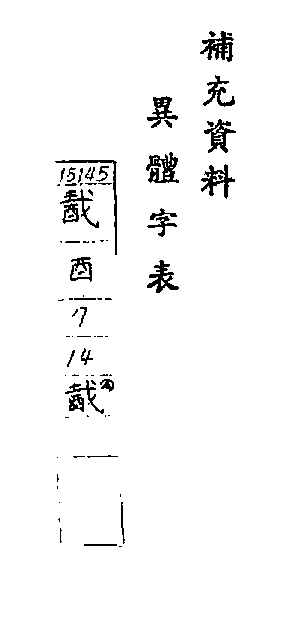 補充資料
異體字表
15145
酉
7
14